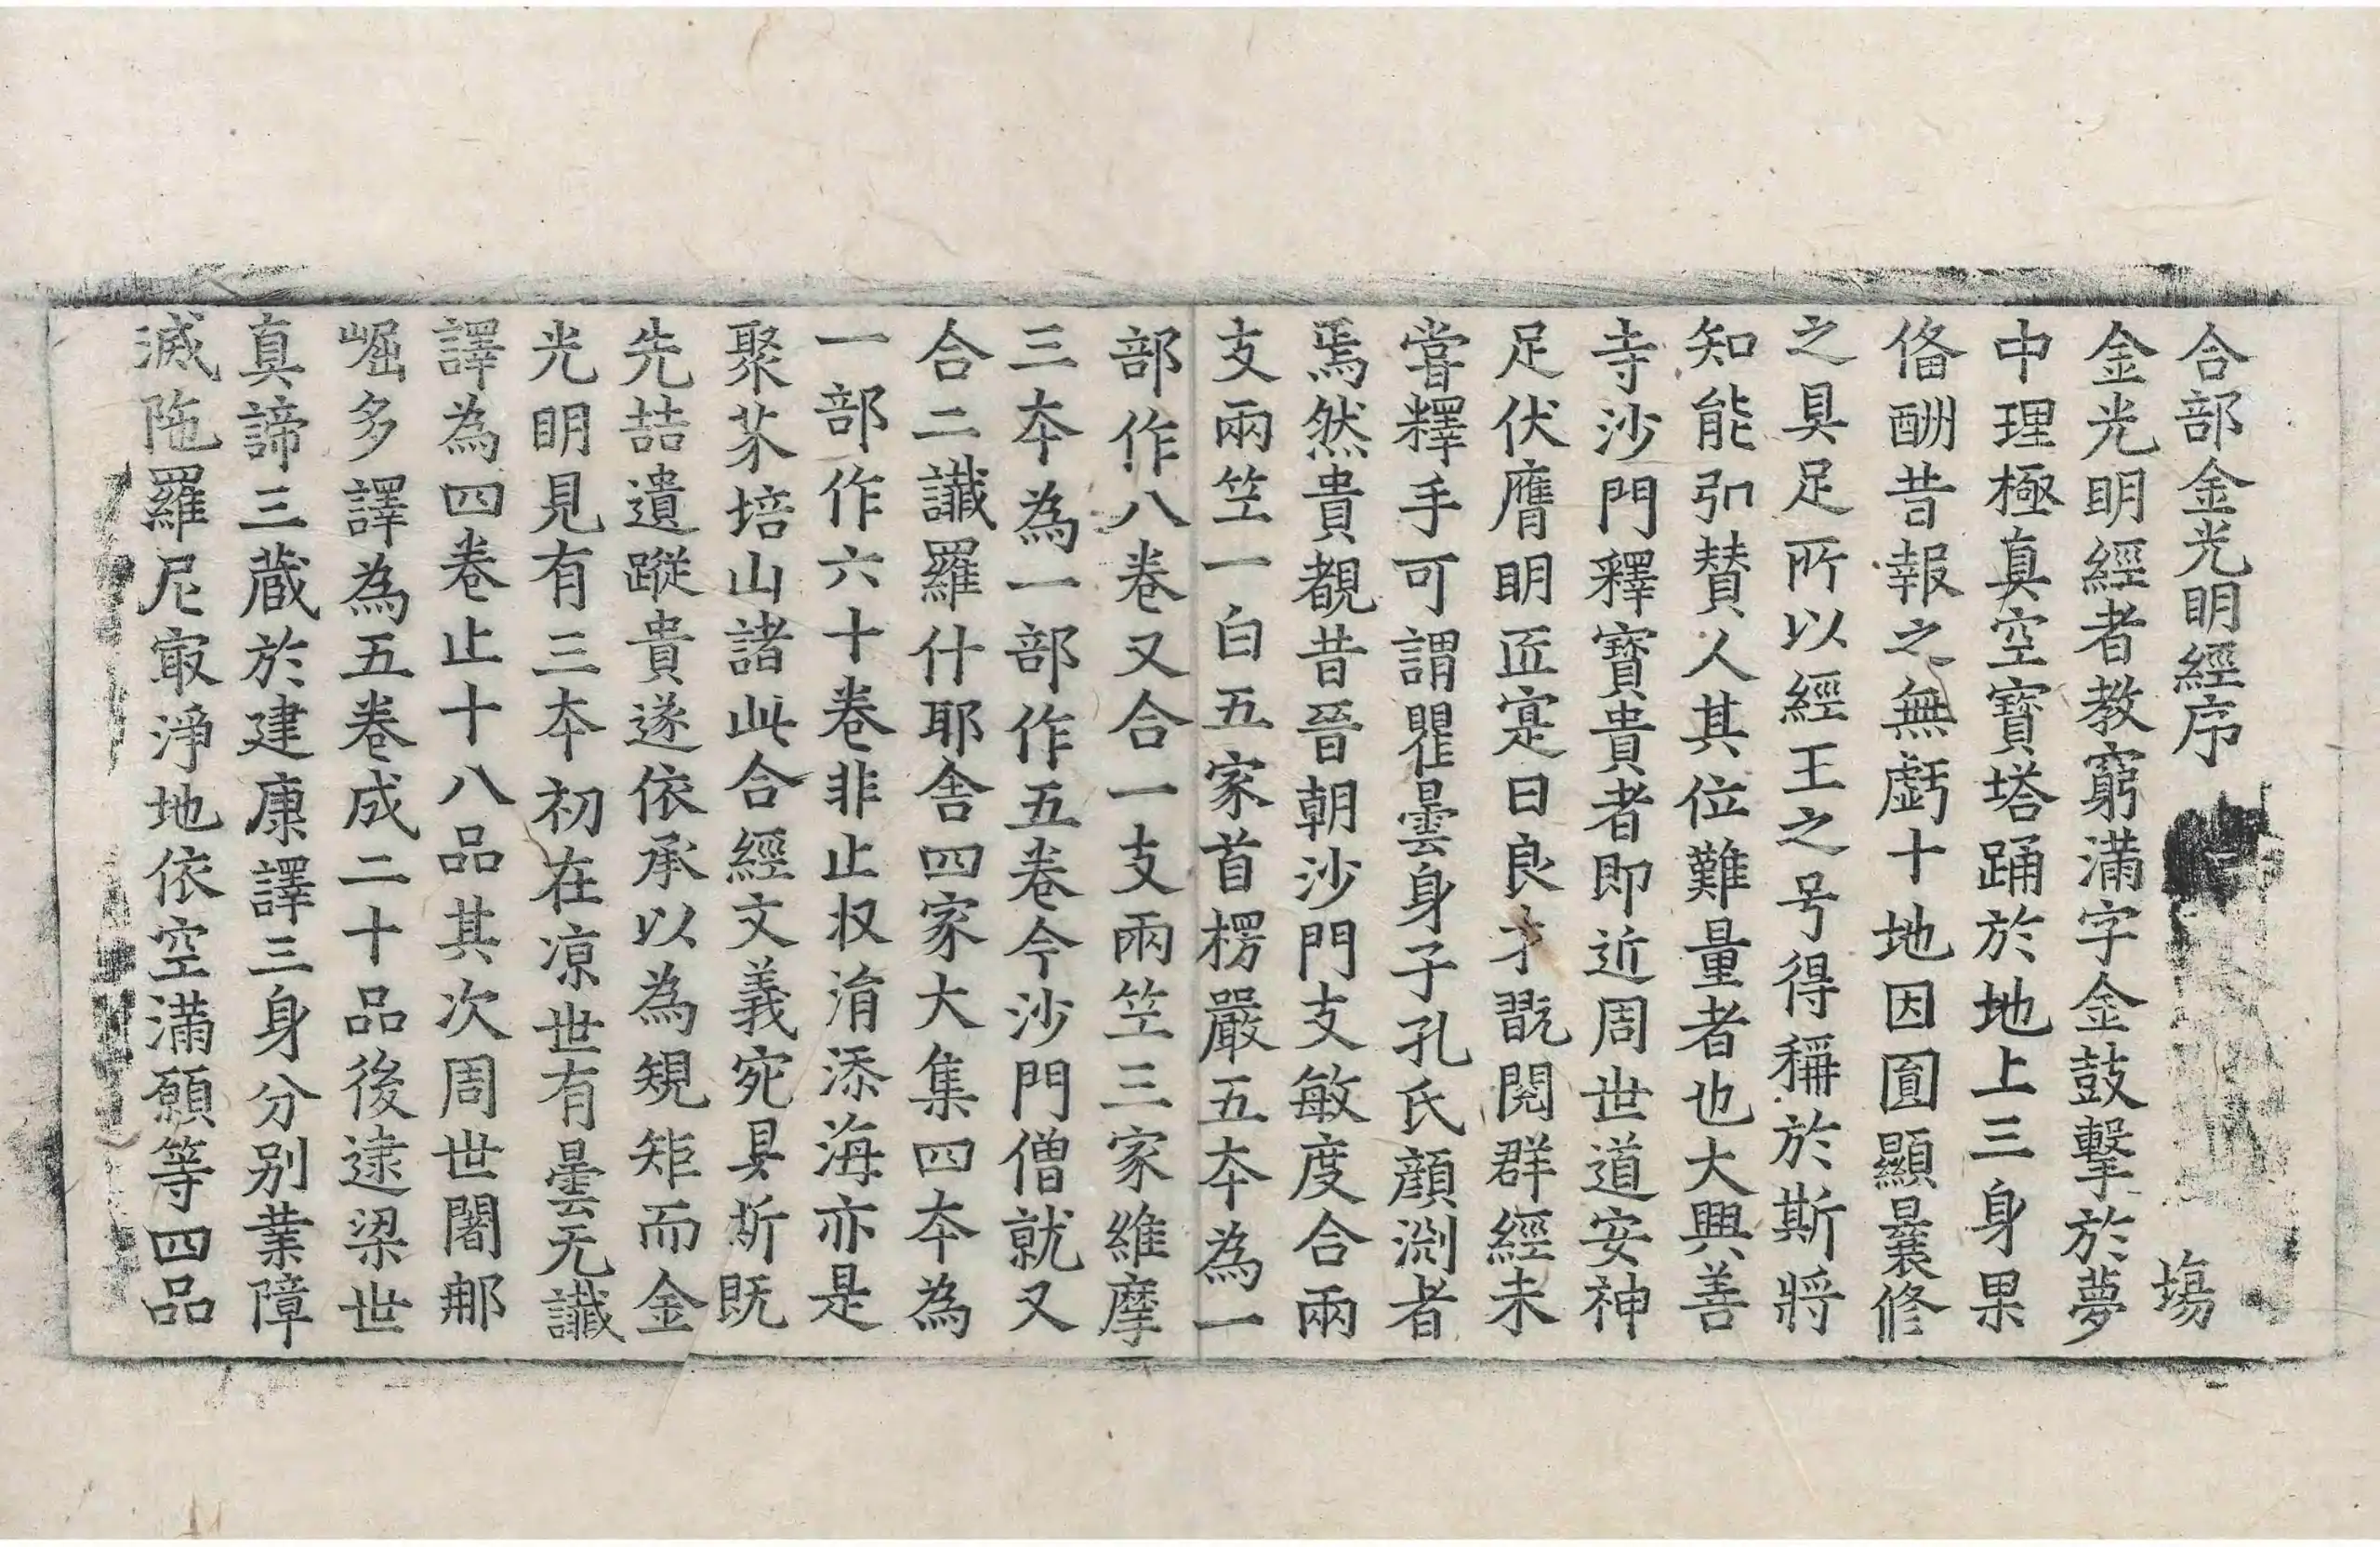 合部金光明經序 塲
金光明經者教窮滿字金鼓擊於夢
中理極真空寶塔踊於地上三身果
俻酬昔報之無虧十地因圎顯曩修
之具足所以經王之号得稱於斯將
知能引賛人其位難量者也大興善
寺沙門釋寶貴者即近周世道安神
足伏膺明匠寔曰良才翫閱群經未
甞釋手可謂瞿曇身子孔氏顔渕者
焉然貴覩昔晉朝沙門支敏度合兩
支兩竺一白五家首楞嚴五夲為一
部作八卷又合一支兩竺三家維摩
三夲為一部作五卷今沙門僧就又
合二讖羅什耶舎四家大集四夲為
一部作六十卷非止収涓添海亦是
聚芥培山諸此合經文義宛具斯既
先喆遺蹤貴遂依承以為䂓矩而金
光明見有三夲初在凉世有曇无讖
譯為四卷止十八品其次周世闍𨚗
崛多譯為五卷成二十品後逮梁世
真諦三蔵於建康譯三身分别業障
滅陁羅尼㝡淨地依空滿願等四品